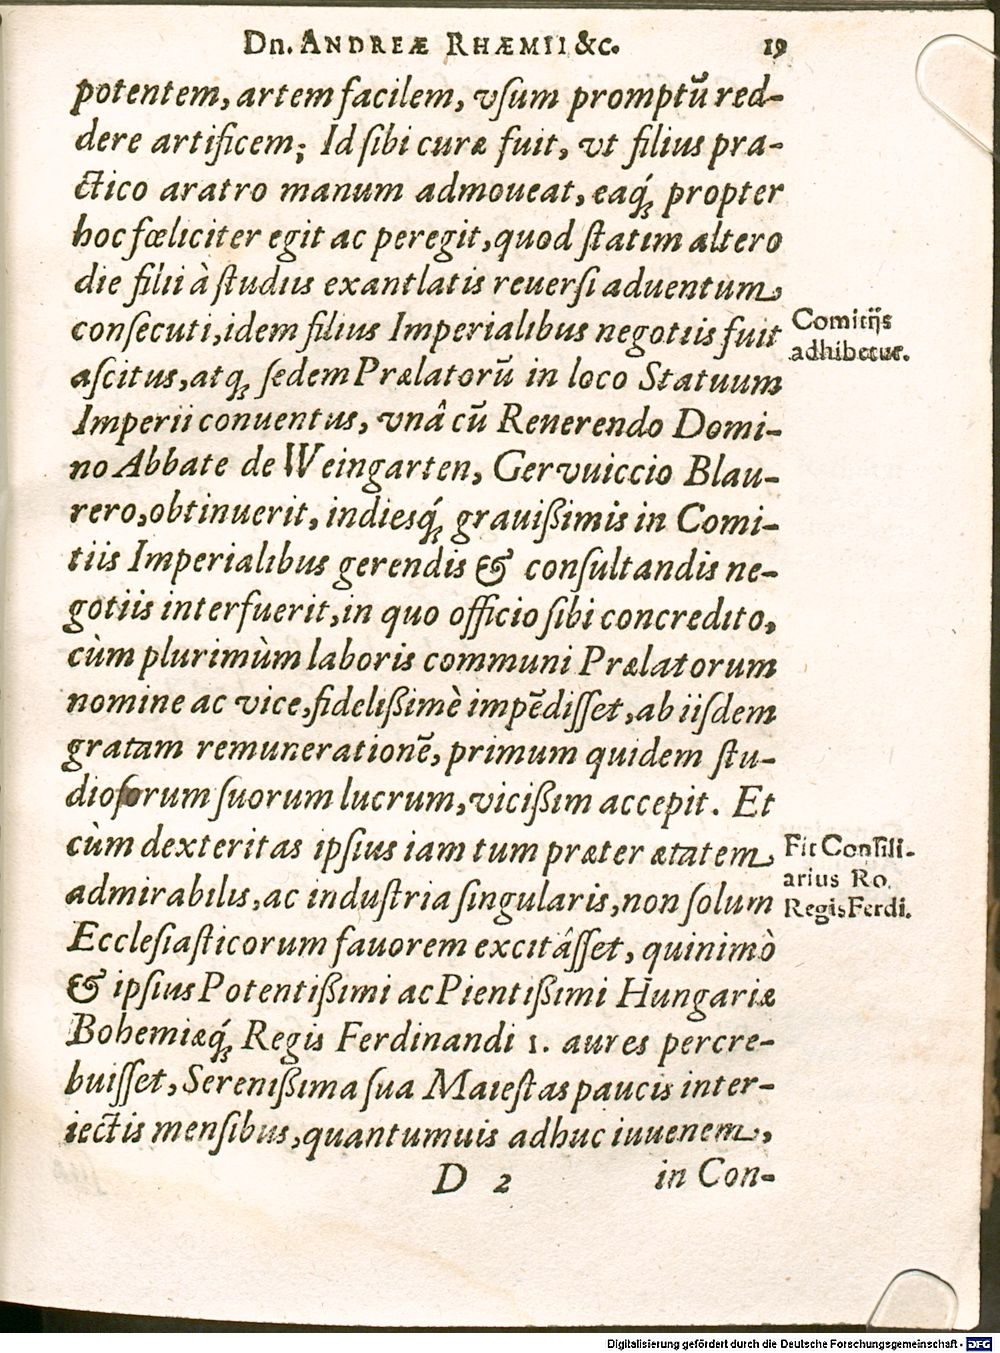 Dn. ANDREÆ RHÆMII &c. 19
potentem, artem facilem, vſum promptũ red-
dere artificem; Id ſibi curæ fuit, vt filius pra-
ctico aratro manum admoueat, eaq́; propter
hoc fœliciter egit ac peregit, quod ſtatim altero
die filii à ſtudiis exantlatis reuerſi aduentum,
conſecuti, idem filius Imperialibus negotiis fuit
Comitijs
adhibetur.
aſcitus, atq; ſedem Prælatorũ in loco Statuum
Imperii conuentus, vnâ cũ Reuerendo Domi-
no Abbate de Weingarten, Gervuiccio Blau-
rero, obtinuerit, indiesq́; grauißimis in Comi-
tiis Imperialibus gerendis & conſultandis ne-
gotiis interfuerit, in quo officio ſibi concredito,
cùm plurimùm laboris communi Prælatorum
nomine ac vice, fidelißimè impẽdiſſet, ab iiſdem
gratam remunerationẽ, primum quidem ſtu-
dioſorum ſuorum lucrum, vicißim accepit. Et
cùm dexteritas ipſius iam tum præter ætatem,
Fit Conſili-
arius Ro.
Regis Ferdi.
admirabilis, ac induſtria ſingularis, non ſolum
Eccleſiaſticorum fauorem excitâſſet, quinimò
& ipſius Potentißimi ac Pientißimi Hungariæ
Bohemiæq́; Regis Ferdinandi 1. aures percre-
buiſſet, Serenißima ſua Maieſtas paucis inter-
iectis menſibus, quantumuis adhuc iuuenem,
D 2 in Con-
Digitalisierung gefördert durch die Deutsche Forschungsgemeinschaft - DFG